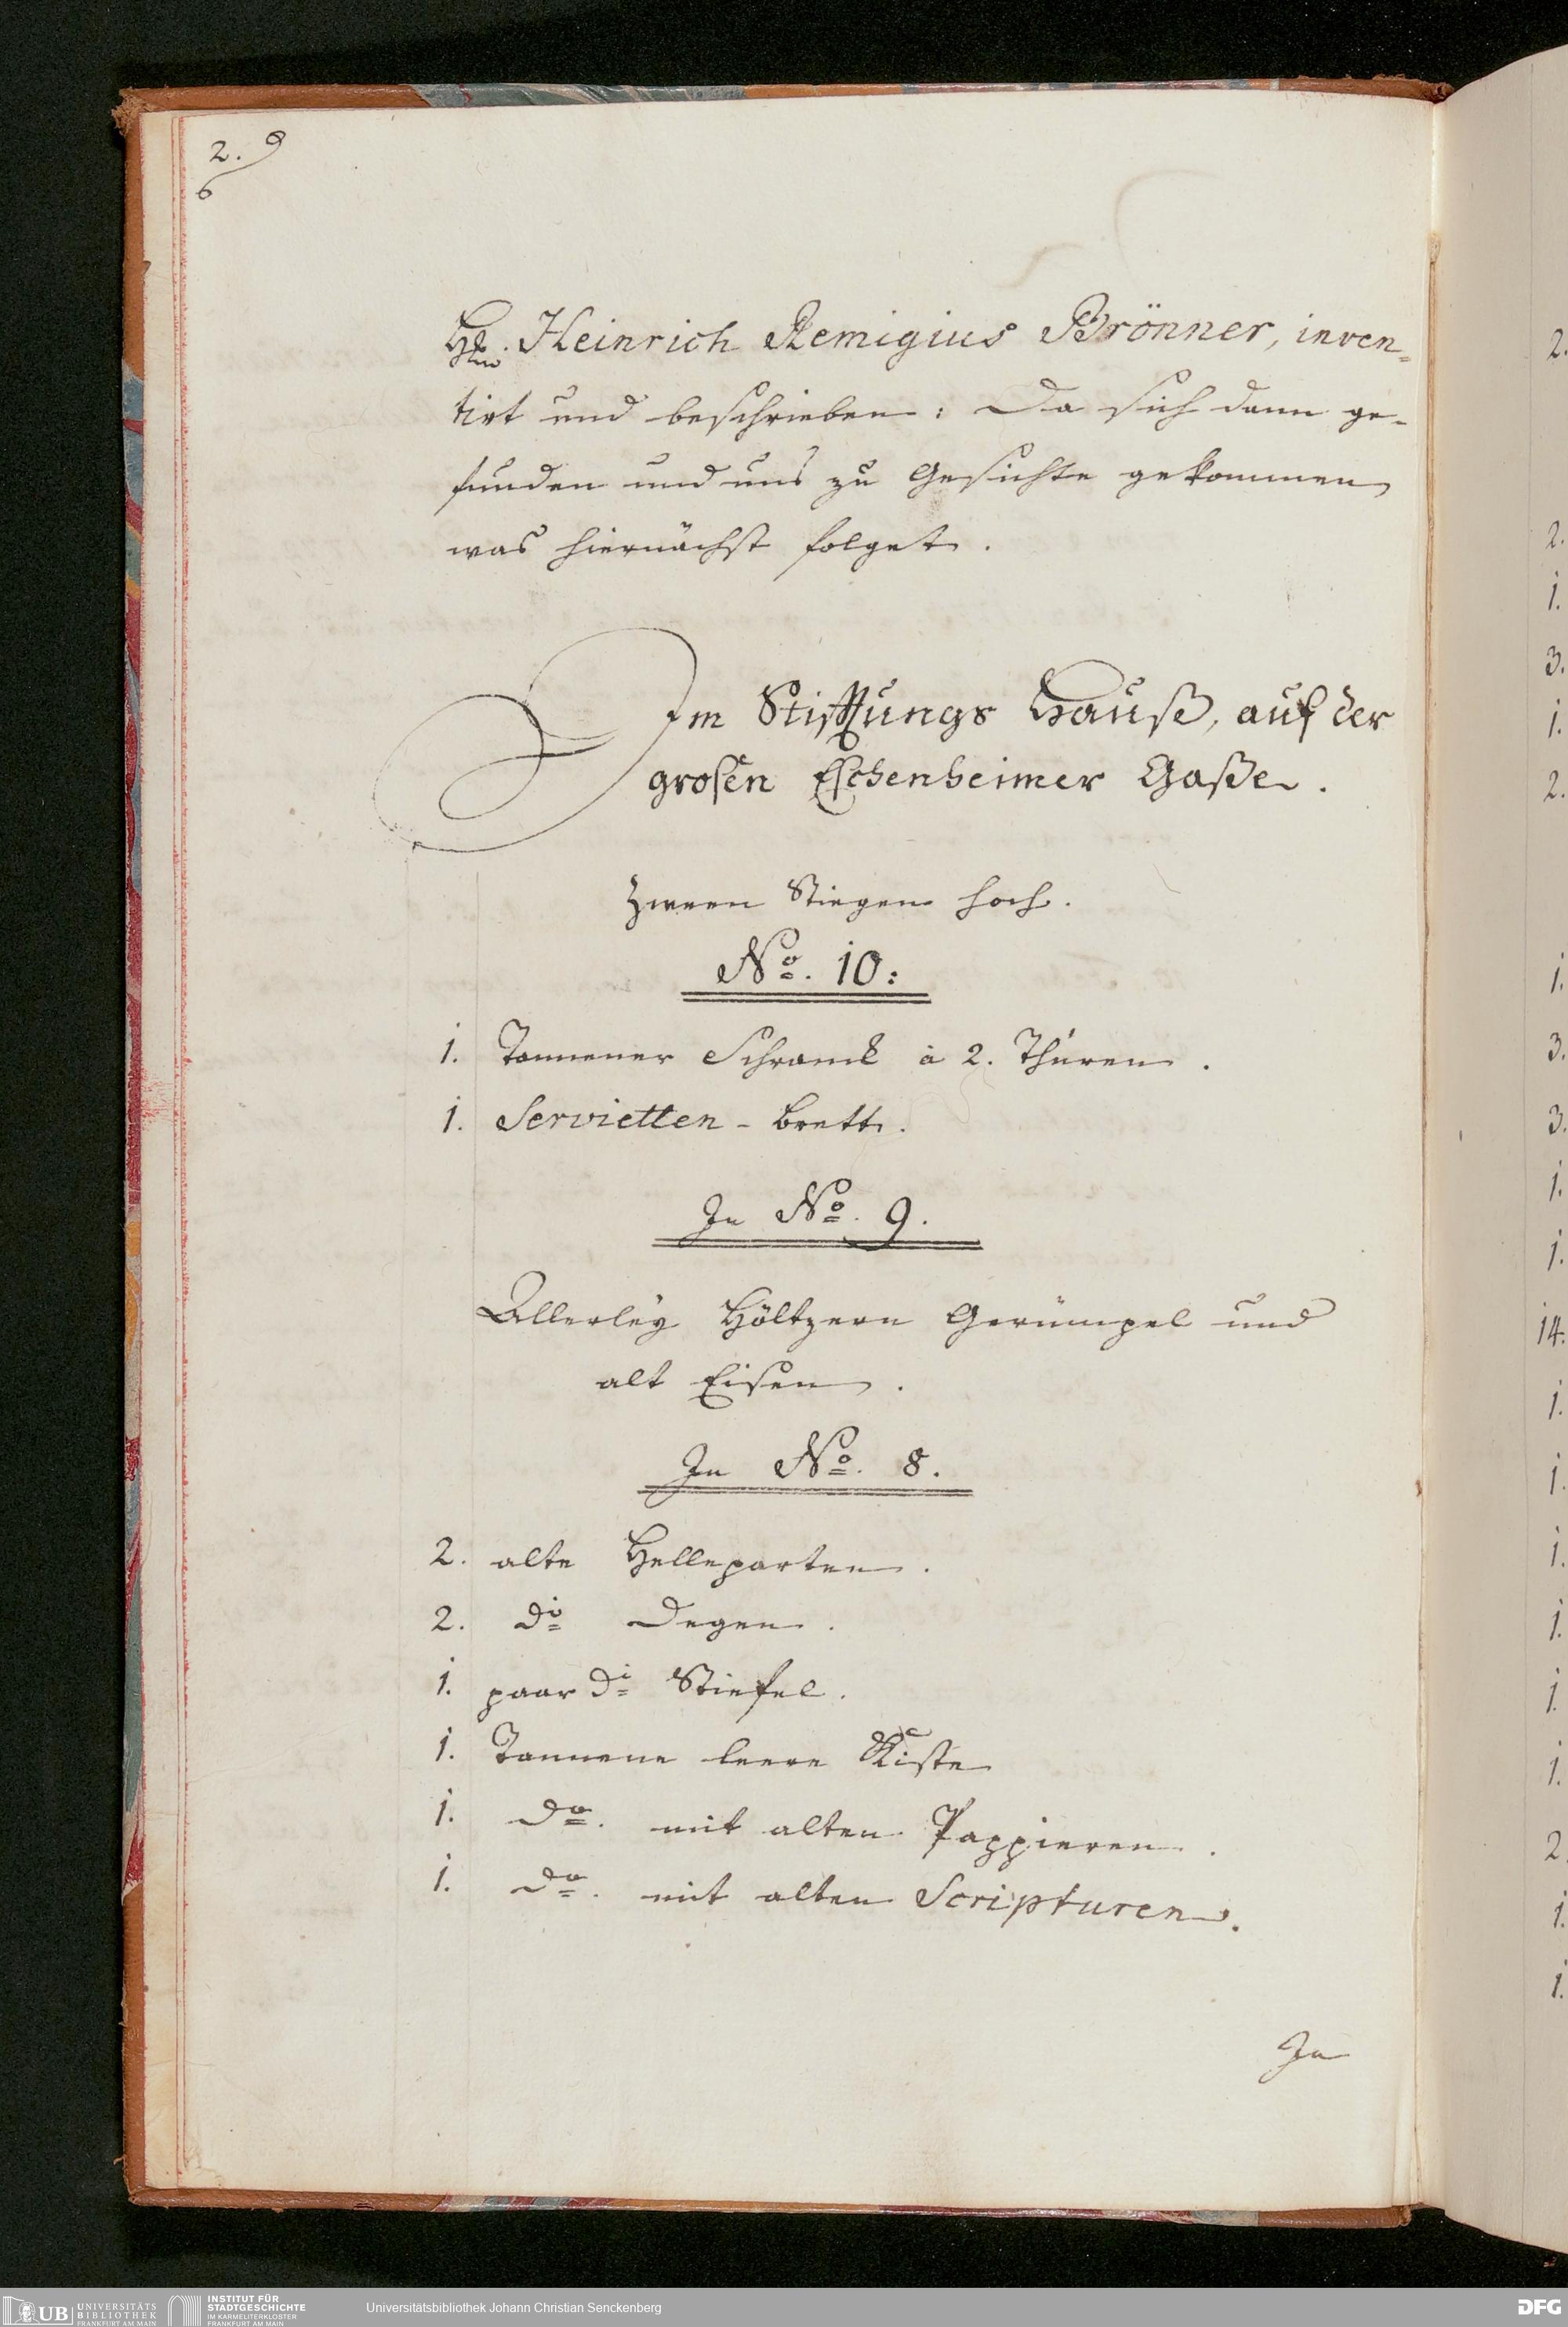 2. 9
6
H. Heinrich Remigius Brönner, inven=
tirt und beschrieben: Da sich dann ge-
funden und uns zu Gesichte gekommen
was hiernächst folget.
Im Stifftungs Hauß, auf der
grosen Eschenheimer Gaße.
Zween Stiegen hoch.
No. 10:
1. Tannener Schranck à 2. Thüren.
1. Servietten-brett.
In No. 9.
Allerley Höltzern Gerümpel und
alt Eisen.
In No. 8.
2. alte Helleparten.
2. do Degen.
1. paar do Stiefel.
1. Tannene leere Kiste
1. do. mit alten Pappieren.
1. do. mit alten Scripturen.
In
2.
2.
1.
3.
1.
2.
1.
3.
3.
1.
1.
14.
1.
1.
1.
1.
1.
1.
2.
1.
1.
UB UNIVERSITÄTS
BIBLIOTHEK
FRANKFURT AM MAIN
INSTITUT FÜR
STADTGESCHICHTE
IM KARMELITERKLOSTER
FRANKFURT AM MAIN
Universitätsbibliothek Johann Christian Senckenberg
DFG